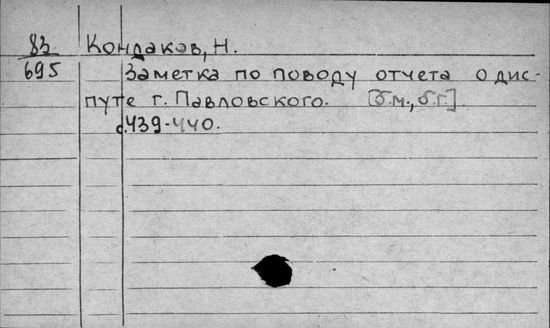 83 Кондаков, Н.
695 Заметка по поводу отчета о дис-
путе г. Павловского. [б.м., б.г.]
с.439-440.